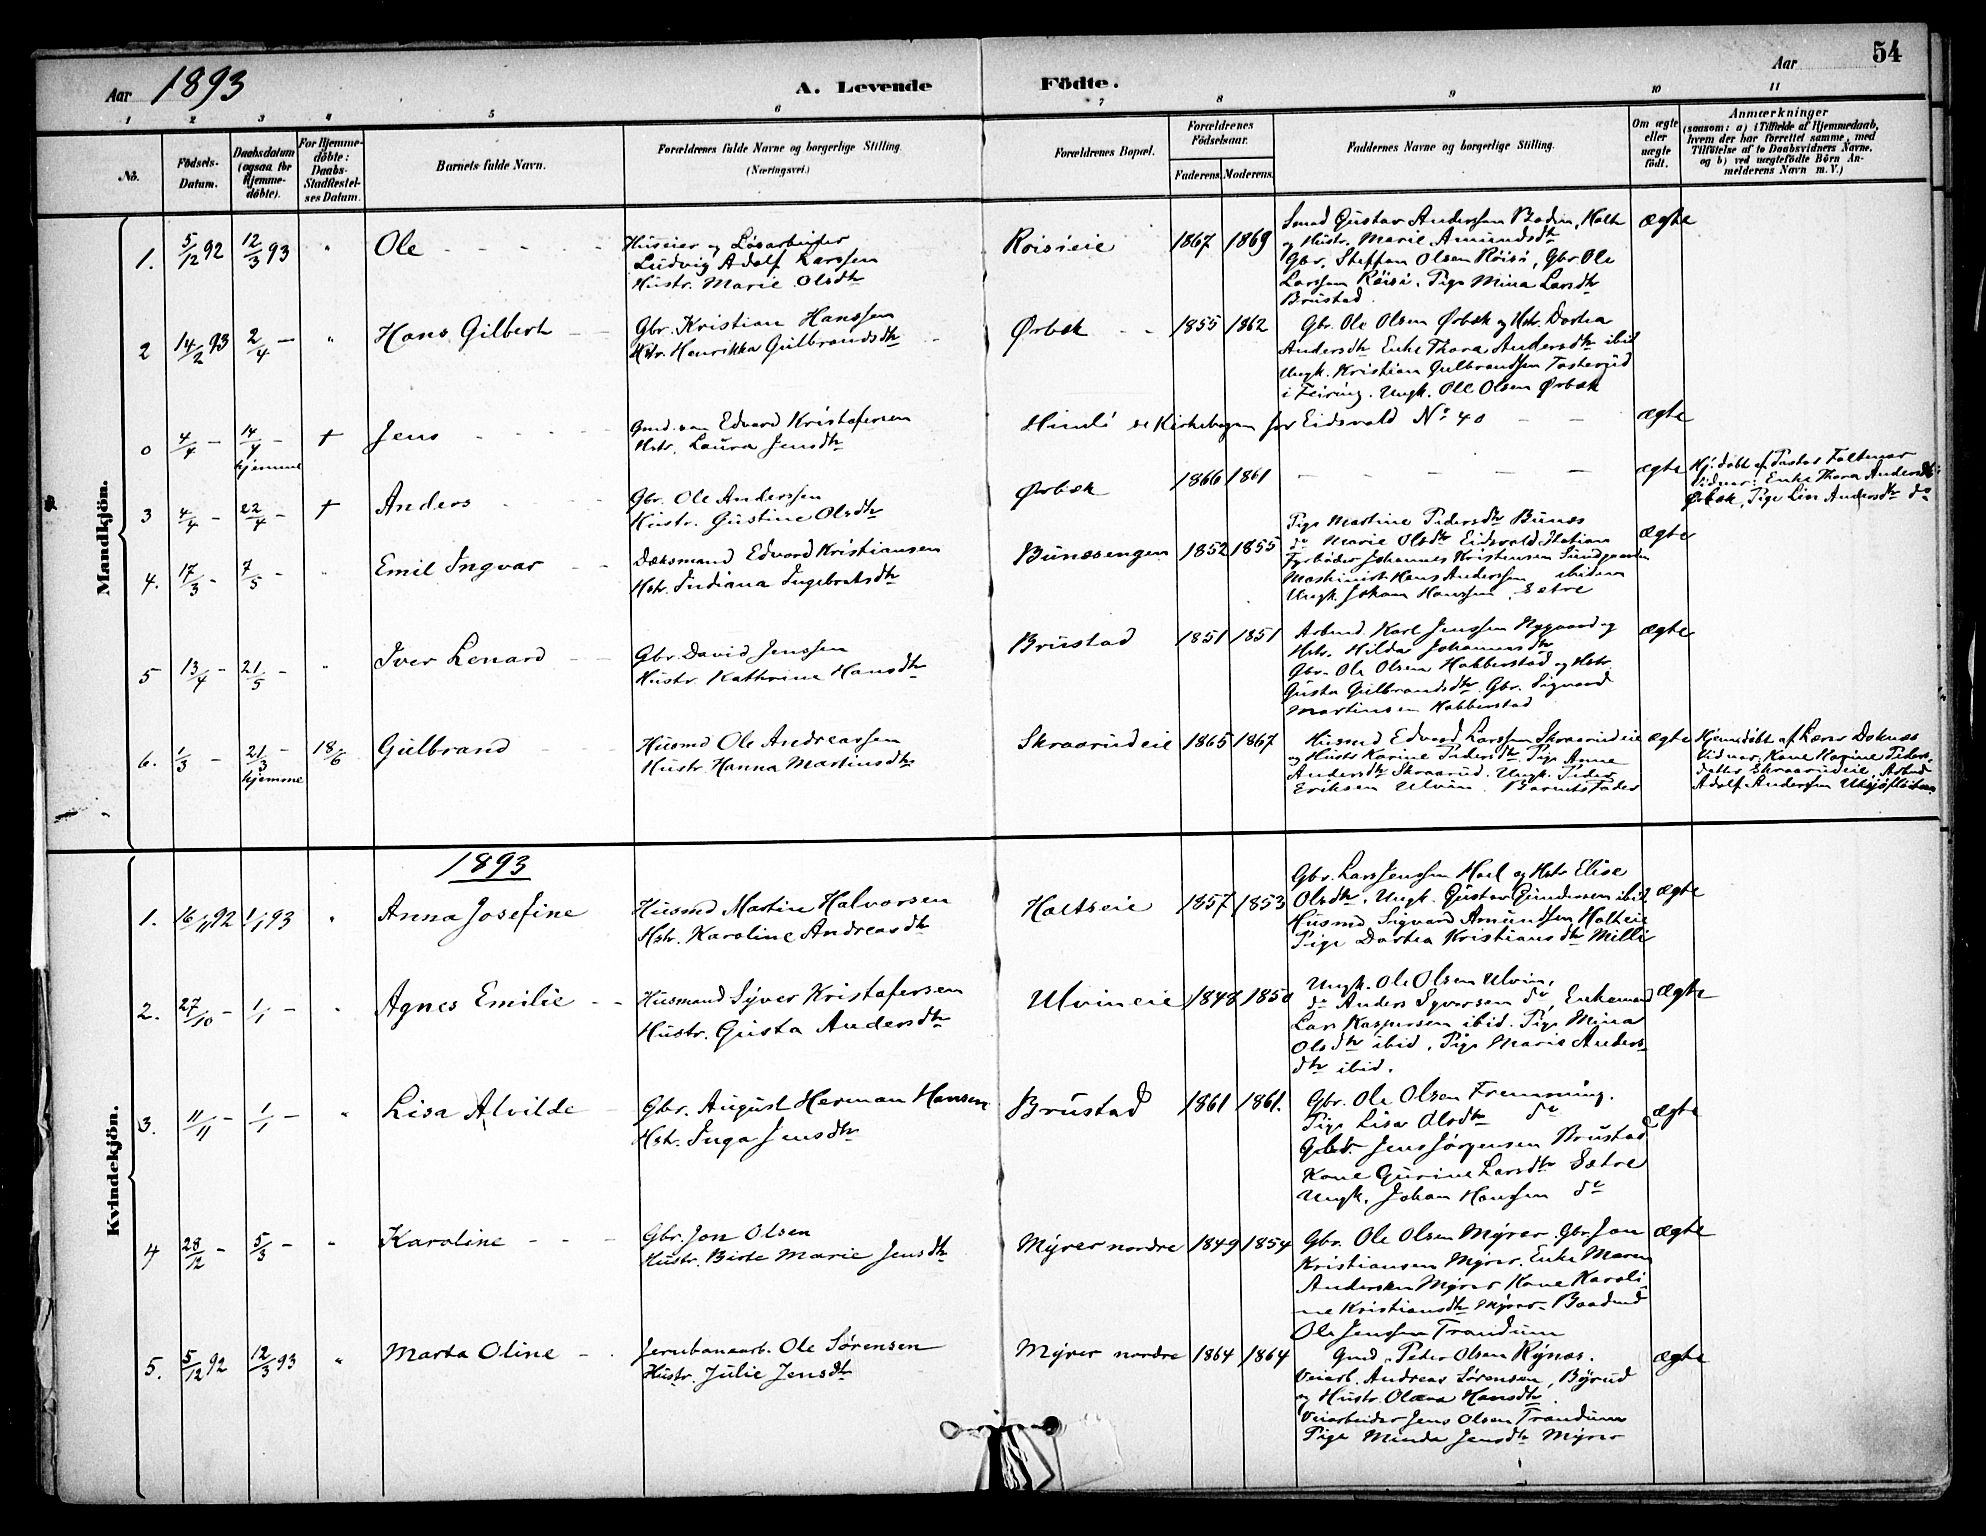 54
Aar 1893
A. Levende Födte.
Aar
1 2 3 4 5 6 7 8 9 10 11
No.
Födsels-Datum.
Daabsdatum (ogsaa for Hjemme-döbte).
For Hjemme-döbte: Daabs-Stadfæstel-ses Datum.
Barnets fulde Navn.
Forældrenes fulde Navne og borgerlige Stilling. (Næringsvei.)
Forældrenes Bopæl.
Forældrenes Födselsaar.
Faderens. Moderens.
Faddernes Navne og borgerlige Stilling.
Om ægte eller uægte födt.
Anmærkninger
(saasom: a) i Tilfælde af Hjemmedaab, hvem der har forrettet samme, med Tilföielse af to Daabsvidners Navne, og b) ved uægtefödte Börn An-melderens Navn m. V.)
Mandkjön.
1. 5/12 92 12/3 93 " Ole
Huseier og Løsarbeider
Ludvig Adolf Larssen
Hustr. Marie Olsdtr
Roisieie 1867 1869
Smed Gustav Anderssen Boden, Holte
og Hustr. Marie Amundsdtr
Gbr. Steffen Olsen Röisi, Gbr Ole
Larssen Röisi. Pige Mina Larsdtr
Brustad.
ægte
2 14/2 93 2/4 — " Hans Gilbert
Gbr. Kristian Hanssen
Hstr. Henrikka Gulbrandsdtr
Ørbæk 1855 1862
Gbr. Ole Olsen Ørbæk og Hstr. Dortea
Andersdtr Enke Thora Andersdtr ibid
Ungk. Kristian Gulbrandsen Tosterud
i Feiring. Ungk. Ole Olsen Ørbæk
0 4/4 — 14/4 — hjemme + Jens
Gmd. søn Edvard Kristofersen
Hstr. Laura Jensdtr
Himli se Kirkebogen for Eidsvold No 40 — —
ægte
3 4/4 — 22/4 — + Anders
Gbr. Ole Anderssen
Hustr. Gustine Olsdtr
Ørbæk 1866 1861 — — — — —
ægte
Hj. døbt af Pastor Foltmar
Vidner: Enke Thora Andersdtr
Ørbæk, Pige Lise Andersdtr do
4. 17/3 — 7/5 — " Emil Ingvar
Dæksmand Edvard Kristiansen
Hstr. Indiana Ingebretsdtr
Bunesengen 1852 1855
Pige Martine Pedersdtr Bunes
do Marie Olsdtr Eidsvold Station
Fyrbøder Johannes Kristensen Sundgaarden
Maskinist Hans Anderssen ibidem
Ungk. Johan Hanssen, Sætre
ægte
5 13/4 — 21/5 — " Iver Lenard
Gbr. David Jenssen
Hustr. Kathrine Hansdtr
Brustad 1851 1851
Arbmd. Karl Jenssen Nygaard og
Hstr. Hilda Johannesdtr
Gbr. Ole Olsen Habberstad og Hstr.
Gusta Gulbrandsdtr. Gbr. Sigvard
Martinsen Habberstad
ægte
6. 1/3 — 21/3 — hjemme 18/6 Gulbrand
Husmd Ole Andreassen
Hustr. Hanna Martinsdtr
Skraarudeie 1865 1867
Husmd Edvard Larssen Skraarudeie
og Hustr Karine Pedersdtr Pige Anne
Andersdtr Skraarud. Ungk. Peder
Eriksen Ulvin. Barnets Fader
ægte
Hjemdøbt af Lærer Doknes
Vidner: Kone Karine Peders-
datter Skraarudeie. Arbmd
Adolf Anderssen
Kvindekjön.
1893
1. 16/11 92 1/1 93 " Anna Josefine
Husmd Martin Halvorsen
Hstr. Karoline Andreasdtr
Holtseie 1857 1853
Gbr. Lars Jenssen Hoel og Hstr Elise
Olsdtr, Ungk. Gustav Gundersen ibid,
Husmd Sigvard Amundsen Holteie
Pige Dortea Kristiansdtr Milli
ægte
2. 27/10 — 1/1 — " Agnes Emilie
Husmand Syver Kristofersen
Hustr. Gusta Andersdtr
Ulvineie 1848 1850
Ungk. Ole Olsen Ulvin,
do Anders Syversen do, Enkemand
Lars Kaspersen ibid. Pige Mina
Olsdtr ibid, Pige Marie Anders-
dtr ibid.
ægte
3. 11/11 — 1/1 — " Lisa Alvilde
Gbr. August Herman Hansen
Hstr. Inga Jensdtr
Brustad 1861 1861.
Gbr. Ole Olsen Fremming.
Pige Lisa Olsdtr do
Gbr. Jens Jørgensen Brustad
Kone Gurine Larsdtr Sætre
Ungk. Johan Hanssen do
ægte
4 28/12 — 5/3 — " Karoline
Gbr. Jon Olsen
Hustr. Birte Marie Jensdtr
Myrer nordre 1849 1854
Gbr. Ole Olsen Myrer. Gbr. Jon
Kristiansen Myrer. Enke Maren
Andersen Myrer Kone Karoli-
ne Kristiansdtr Myrer. Baadmd
Ole Jenssen Trandum
ægte
5. 5/12 92 12/3 93 " Marta Oline
Jernbanearb. Ole Sørensen
Hustr. Julie Jensdtr
Myrer nordre 1864 1864
Gmd. Peder Olsen Rynæs.
Veiarb. Andreas Sørensen, Byrud
og Hustr. Olava Hansdtr,
Veiarbeider Jens Olsen Trandum
Pige Minda Jensdtr Myrer
ægte